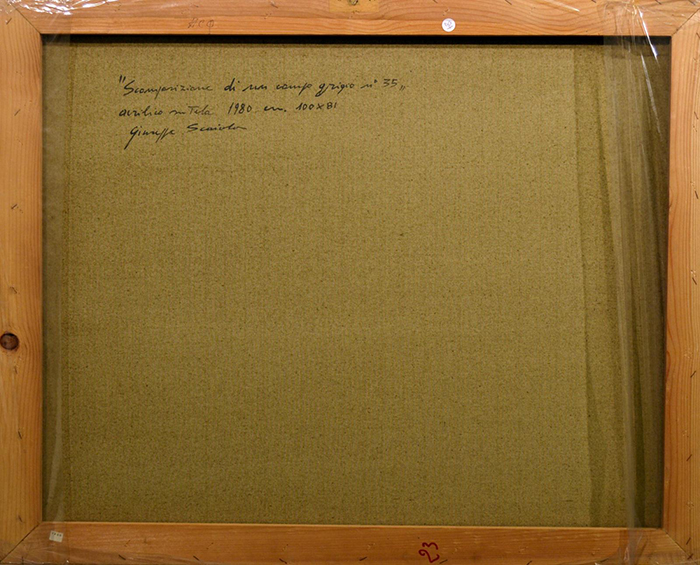 "Scomposizione di un campo grigio n° 35"
acrilico su tela 1980 cm. 100x81
Giuseppe Scaiola
23